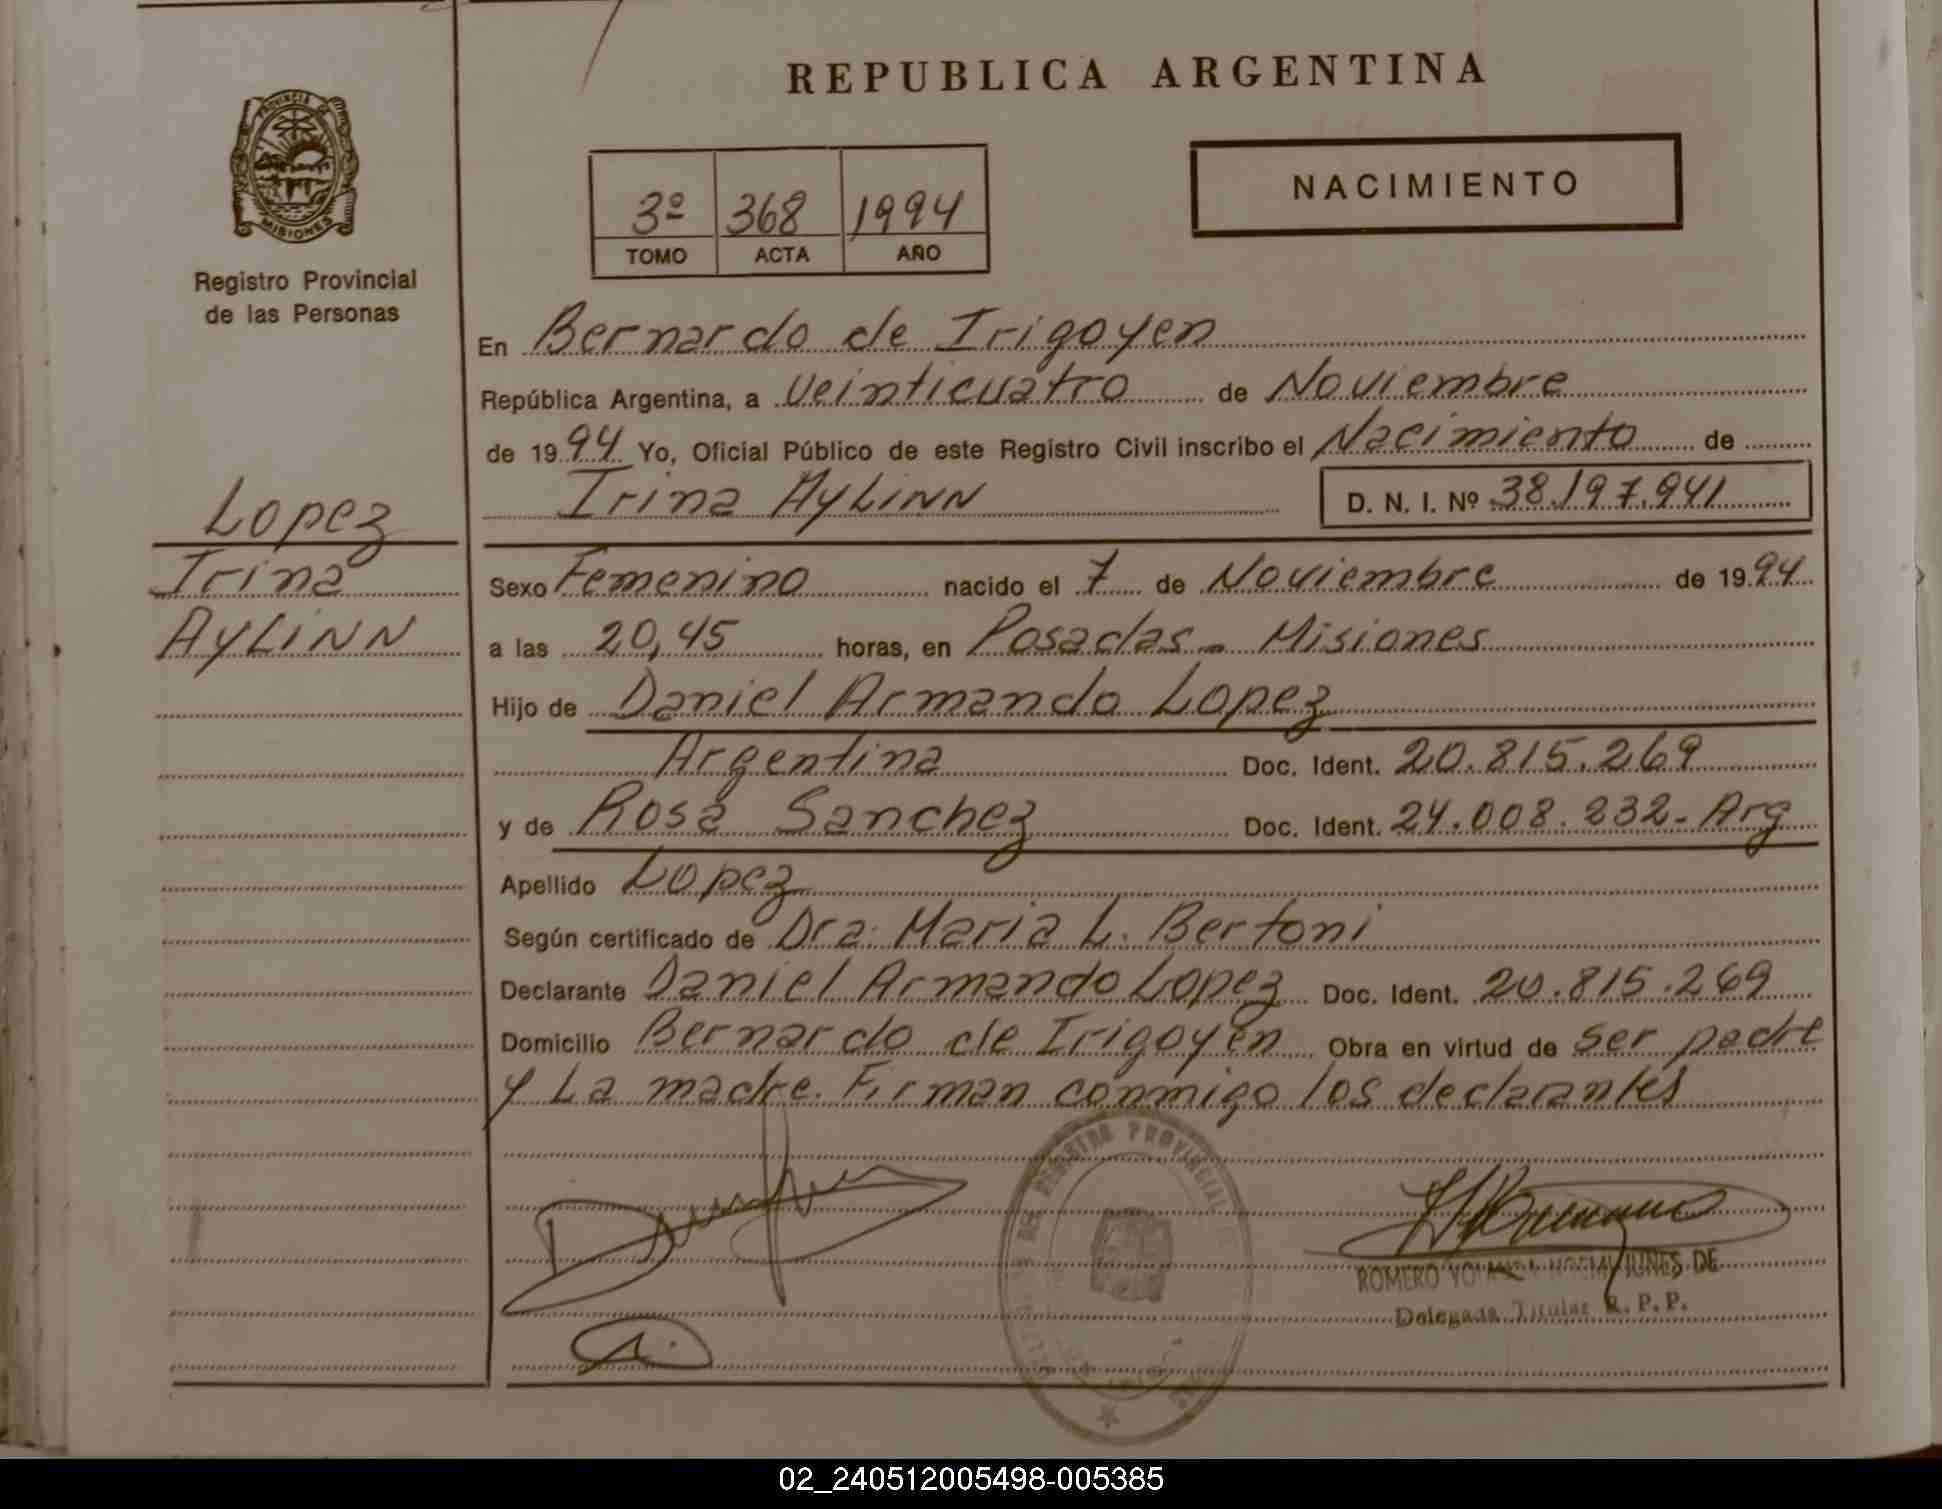 REPUBLICA ARGENTINA
PROVINCIA DE
MISIONES
Registro Provincial
de las Personas
3º 368 1994
TOMO ACTA AÑO
NACIMIENTO
Lopez
Irina
Aylinn
En Bernardo de Irigoyen
República Argentina, a veinticuatro de Noviembre
de 1994 Yo, Oficial Público de este Registro Civil inscribo el Nacimiento de
Irina Aylinn D. N. I. Nº 38.197.941
Sexo Femenino nacido el 7 de Noviembre de 1994
a las 20,45 horas, en Posadas - Misiones
Hijo de Daniel Armando Lopez
Argentina Doc. Ident. 20.815.269
y de Rosa Sanchez Doc. Ident. 24.008.232- Arg
Apellido Lopez
Según certificado de Dra. Maria L. Bertoni
Declarante Daniel Armando Lopez Doc. Ident. 20.815.269
Domicilio Bernardo de Irigoyen Obra en virtud de ser padre
y La madre. Firman conmigo los declarantes
REGISTRO PROVINCIAL DE
ROMERO YOLANDA NOEMI JUNES DE
Delegada Titular R. P. P.
02_240512005498-005385